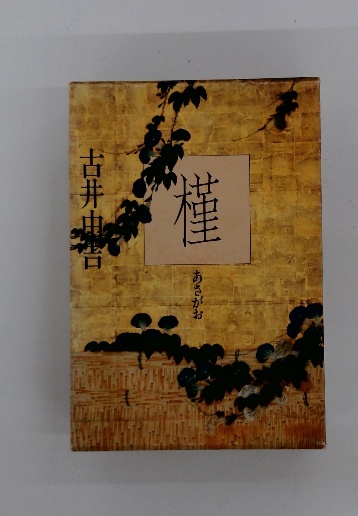 古井由吉
槿
あさがお